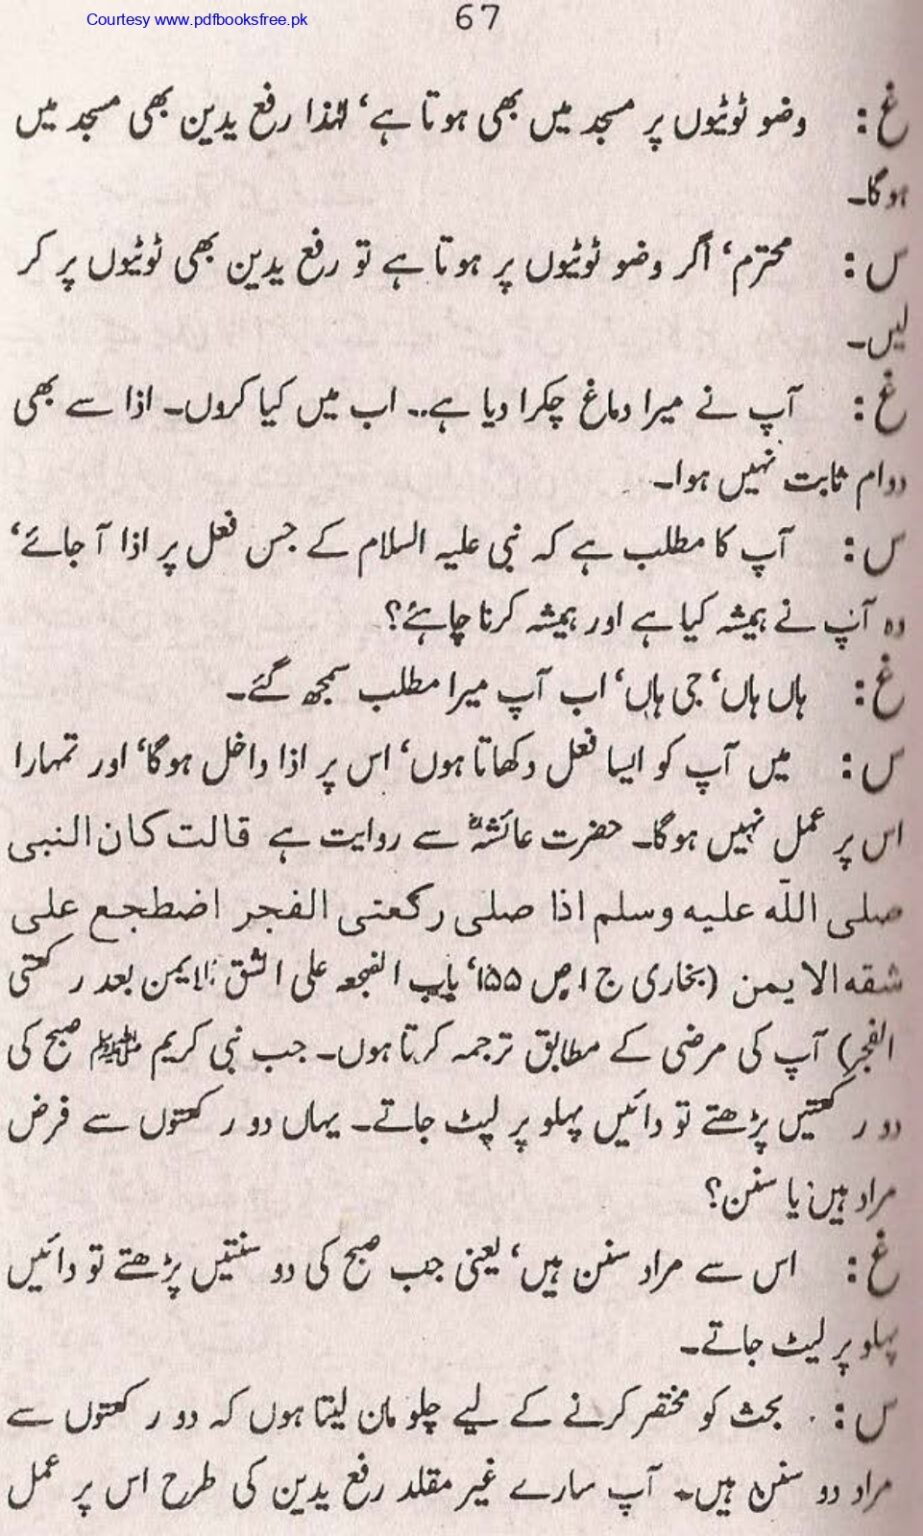 Courtesy www.pdfbooksfree.pk
67
غ: وضو ٹوٹیوں پر مسجد میں بھی ہوتا ہے‘ لہٰذا رفع یدین بھی مسجد میں
ہوگا۔
س: محترم‘ اگر وضو ٹوٹیوں پر ہوتا ہے تو رفع یدین بھی ٹوٹیوں پر کر
لیں۔
غ: آپ نے میرا دماغ چکرا دیا ہے.. اب میں کیا کروں۔ اذا سے بھی
دوام ثابت نہیں ہوا۔
س: آپ کا مطلب ہے کہ نبی علیہ السلام کے جس فعل پر اذا آ جائے‘
وہ آپ نے ہمیشہ کیا ہے اور ہمیشہ کرنا چاہئے؟
غ: ہاں ہاں‘ جی ہاں‘ اب آپ میرا مطلب سمجھ گئے۔
س: میں آپ کو ایسا فعل دکھاتا ہوں‘ اس پر اذا داخل ہوگا‘ اور تمہارا
اس پر عمل نہیں ہوگا۔ حضرت عائشہؓ سے روایت ہے قالت کان النبی
صلی اللّٰہ علیہ وسلم اذا صلی رکعتی الفجر اضطجع علی
شقہ الایمن (بخاری ج ۱ ص ۱۵۵‘ باب الضجعہ علی الشق الایمن بعد رکعتی
الفجر) آپ کی مرضی کے مطابق ترجمہ کرتا ہوں۔ جب نبی کریم ﷺ صبح کی
دو رکعتیں پڑھتے تو دائیں پہلو پر لیٹ جاتے۔ یہاں دو رکعتوں سے فرض
مراد ہیں یا سنن؟
غ: اس سے مراد سنن ہیں‘ یعنی جب صبح کی دو سنتیں پڑھتے تو دائیں
پہلو پر لیٹ جاتے۔
س: بحث کو مختصر کرنے کے لیے چلو مان لیتا ہوں کہ دو رکعتوں سے
مراد دو سنن ہیں۔ آپ سارے غیر مقلد رفع یدین کی طرح اس پر عمل